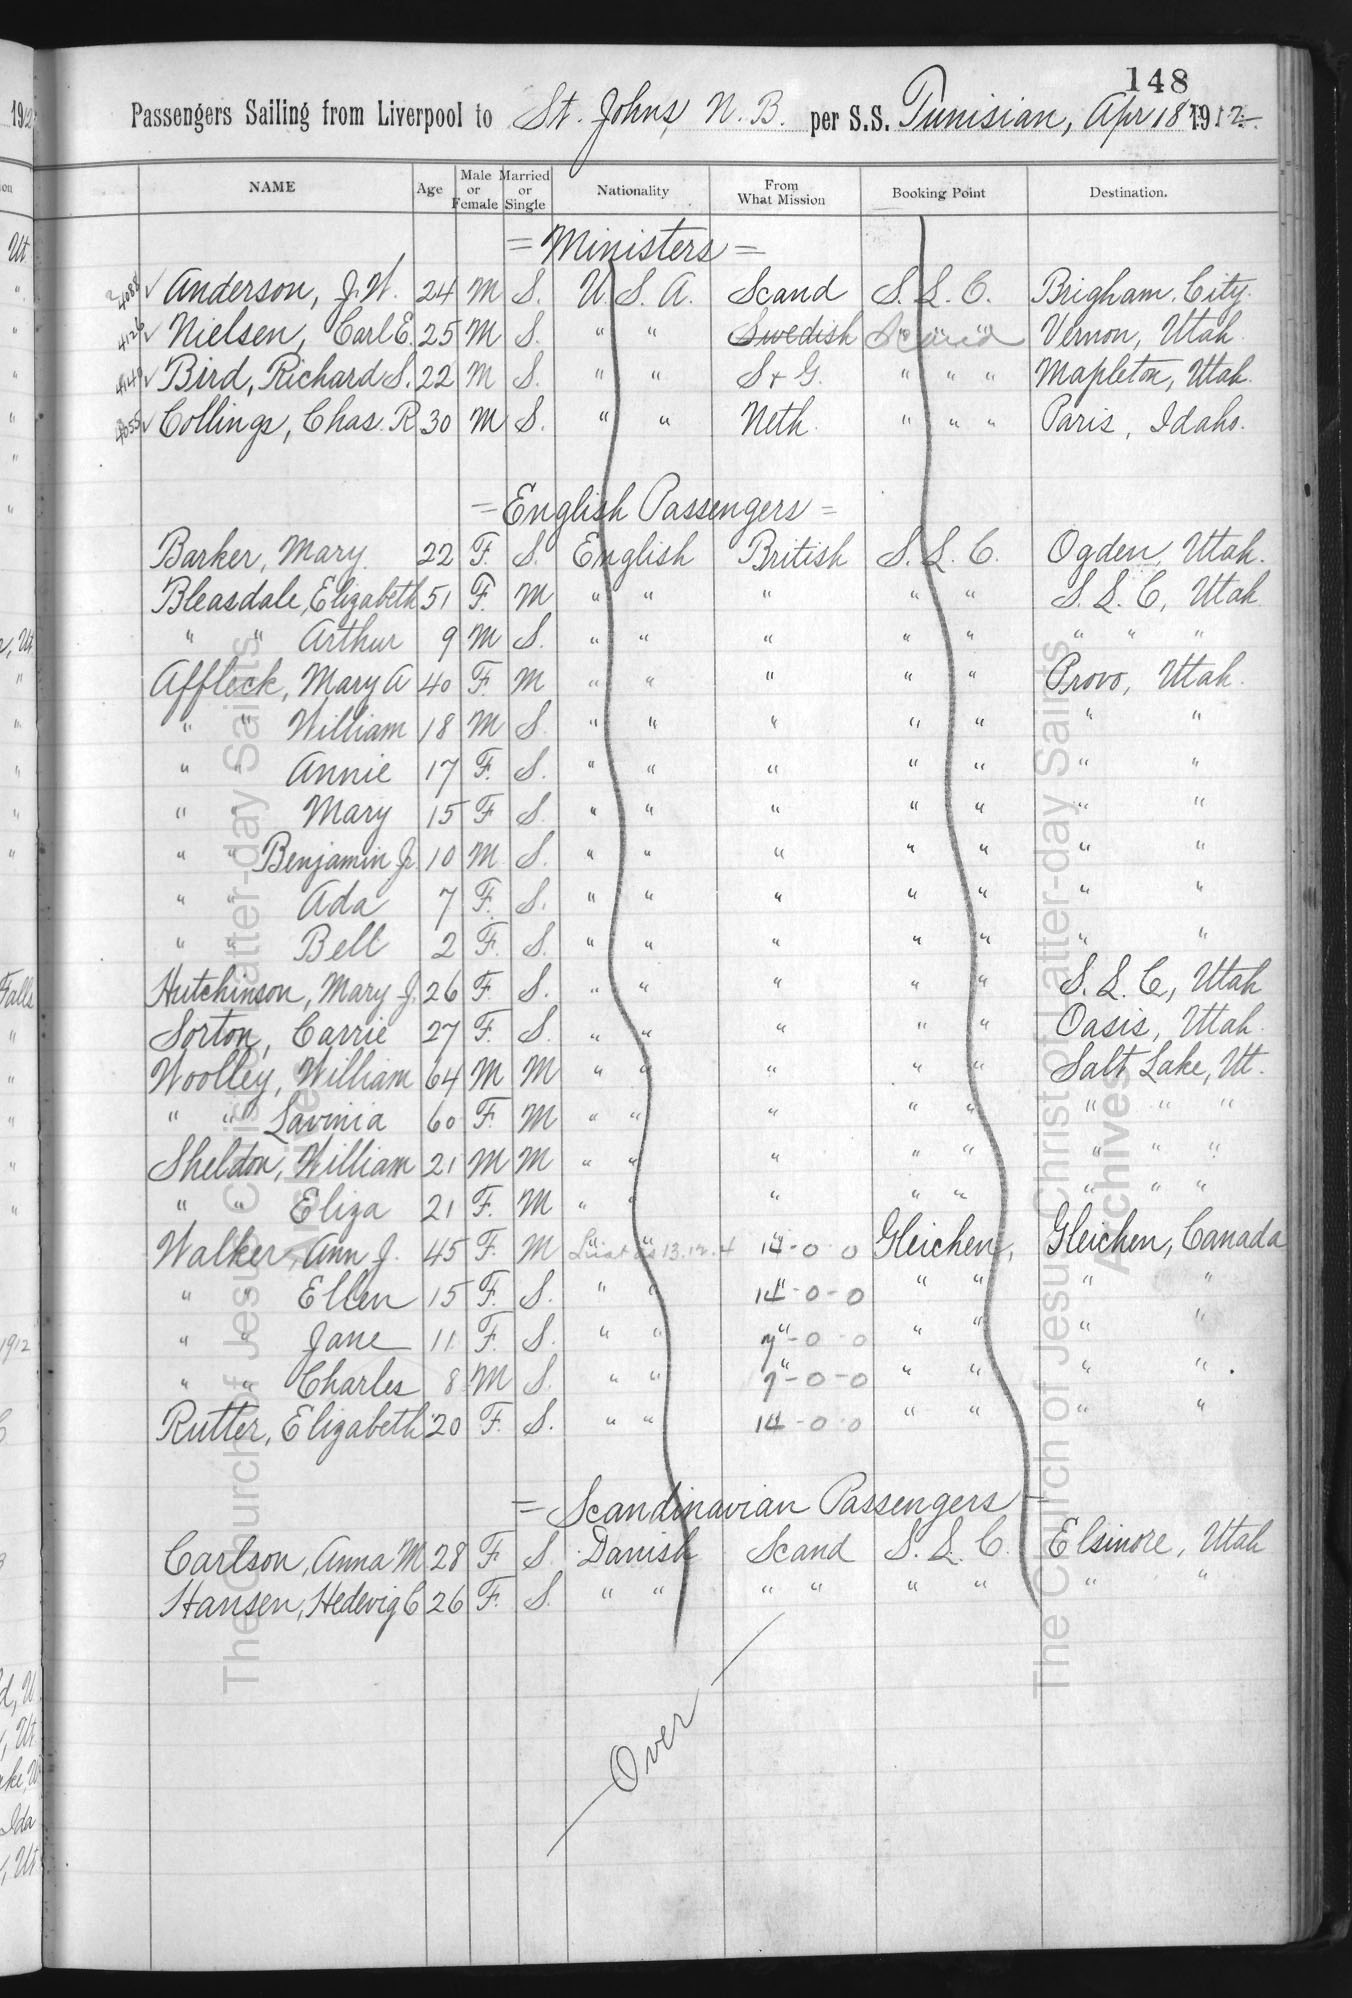 148
Passengers Sailing from Liverpool to St. Johns, N. B. per S.S. Tunisian, Apr 18 1912
NAME Age Male or Female Married or Single Nationality From What Mission Booking Point Destination.
= Ministers =
4088 ✓ Anderson, J. W. 24 M S. U. S. A. Scand S. L. C. Brigham City.
4126 ✓ Nielsen, Carl E. 25 M S. " " Swedish Scand " " Vernon, Utah.
4140 ✓ Bird, Richard S. 22 M S. " " S + G. " " " Mapleton, Utah.
4055 ✓ Collings, Chas. R 30 M S. " " Neth. " " " Paris, Idaho.
= English Passengers =
Barker, Mary. 22 F. S. English British S. L. C. Ogden, Utah.
Bleasdale, Elizabeth 51 F. M " " " " " S. L. C, Utah
" " Arthur 9 M S. " " " " " " " "
Affleck, Mary A 40 F. M " " " " " Provo, Utah.
" " William 18 M S. " " " " " " "
" " Annie 17 F. S. " " " " " " "
" Mary 15 F S. " " " " " " "
" " Benjamin Jr 10 M S. " " " " " " "
" " Ada 7 F. S. " " " " " " "
" " Bell 2 F. S. " " " " " " "
Hutchinson, Mary J. 26 F. S. " " " " " S. L. C, Utah
Sorton, Carrie 27 F. S. " " " " " Oasis, Utah.
Woolley, William 64 M M " " " " " Salt Lake, Ut.
" " Lavinia 60 F. M " " " " " " " "
Sheldon, William 21 M M " " " " " " " "
" " Eliza 21 F. M " " " " " " " "
Walker, Ann J. 45 F. M " " 13.12.4 14-0 0 Gleichen, Gleichen, Canada
" " Ellen 15 F. S. " " 14-0-0 " " " "
" " Jane 11 F. S. " " 7-0 0 " " " "
" " Charles 8 M S. " " 7-0-0 " " " "
Rutter, Elizabeth 20 F. S. " " 14-0 0 " " " "
= Scandinavian Passengers =
Carlson, Anna M 28 F S. Danish Scand S. L. C. Elsinore, Utah
Hansen, Hedevig C 26 F. S. " " " " " " " "
Over
The Church of Jesus Christ of Latter-day Saints
Archives
The Church of Jesus Christ of Latter-day Saints
Archives